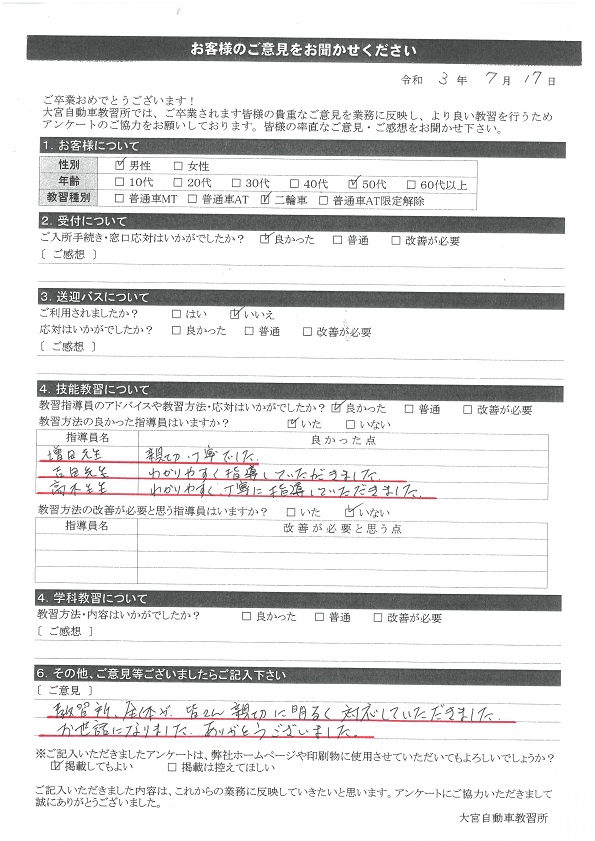 お客様のご意見をお聞かせください
令和 3 年 7 月 17 日
ご卒業おめでとうございます！
大宮自動車教習所では、ご卒業されます皆様の貴重なご意見を業務に反映し、より良い教習を行うため
アンケートのご協力をお願いしております。皆様の率直なご意見・ご感想をお聞かせ下さい。
1. お客様について
性別 ☑ 男性 □ 女性
年齢 □ 10代 □ 20代 □ 30代 □ 40代 ☑ 50代 □ 60代以上
教習種別 □ 普通車MT □ 普通車AT ☑ 二輪車 □ 普通車AT限定解除
2. 受付について
ご入所手続き・窓口応対はいかがでしたか？ ☑ 良かった □ 普通 □ 改善が必要
〔 ご感想 〕
3. 送迎バスについて
ご利用されましたか？ □ はい ☑ いいえ
応対はいかがでしたか？ □ 良かった □ 普通 □ 改善が必要
〔 ご感想 〕
4. 技能教習について
教習指導員のアドバイスや教習方法・応対はいかがでしたか？ ☑ 良かった □ 普通 □ 改善が必要
教習方法の良かった指導員はいますか？ ☑ いた □ いない
指導員名 良かった点
増田先生 親切、丁寧でした。
吉田先生 わかりやすく指導していただきました。
高木先生 わかりやすく丁寧に指導していただきました。
教習方法の改善が必要と思う指導員はいますか？ □ いた ☑ いない
指導員名 改善が必要と思う点
4. 学科教習について
教習方法・内容はいかがでしたか？ □ 良かった □ 普通 □ 改善が必要
〔 ご感想 〕
6. その他、ご意見等ございましたらご記入下さい
〔 ご意見 〕
教習所全体が、皆さん親切に明るく対応していただきました。
お世話になりました。ありがとうございました。
※ご記入いただきましたアンケートは、弊社ホームページや印刷物に使用させていただいてもよろしいでしょうか？
☑ 掲載してもよい □ 掲載は控えてほしい
ご記入いただきました内容は、これからの業務に反映していきたいと思います。アンケートにご協力いただきまして
誠にありがとうございました。
大宮自動車教習所